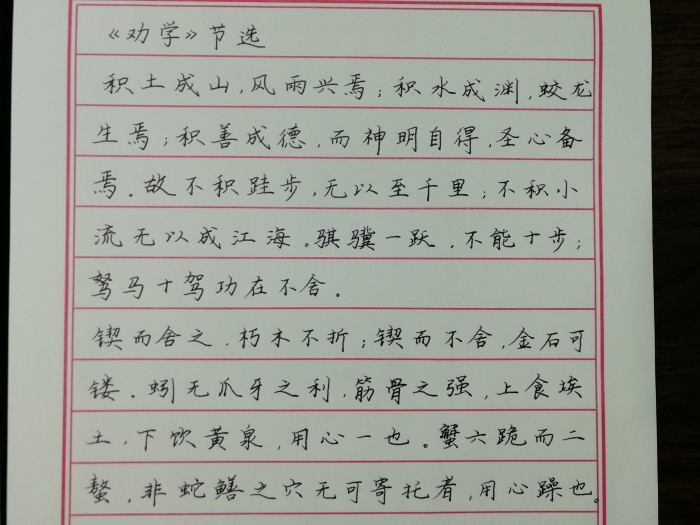 《劝学》节选
积土成山,风雨兴焉;积水成渊,蛟龙
生焉;积善成德,而神明自得,圣心备
焉.故不积跬步,无以至千里;不积小
流无以成江海。骐骥一跃,不能十步;
驽马十驾功在不舍.
锲而舍之,朽木不折;锲而不舍,金石可
镂.蚓无爪牙之利,筋骨之强,上食埃
土,下饮黄泉,用心一也。蟹六跪而二
螯,非蛇鳝之穴无可寄托者,用心躁也。